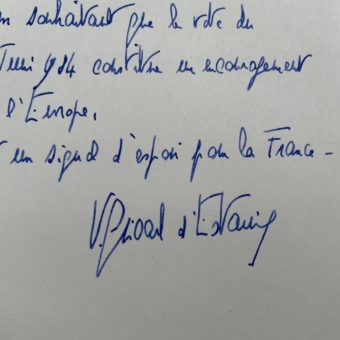 en souhaitant que le vote du
Juin 1984 constitue un encouragement
l'Europe,
et un signal d'espoir pour la France –
V. Giscard d'Estaing